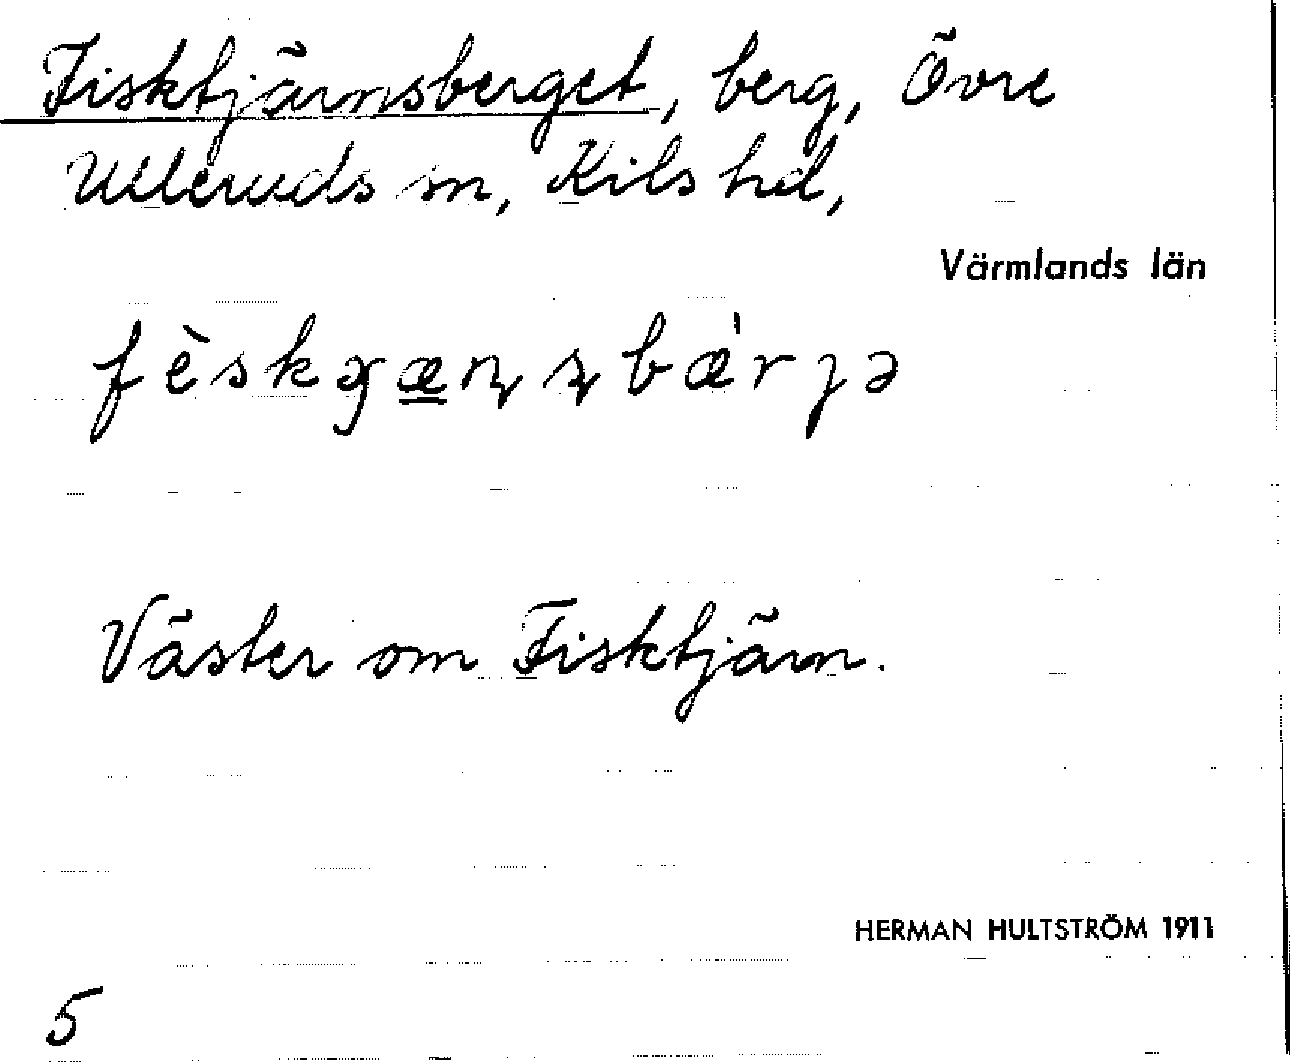 Fisktjärnsberget, berg, Övre
Ulleruds sn, Kils hd,
Värmlands län
Väster om Fisktjärn.
HERMAN HULTSTRÖM 1911
5